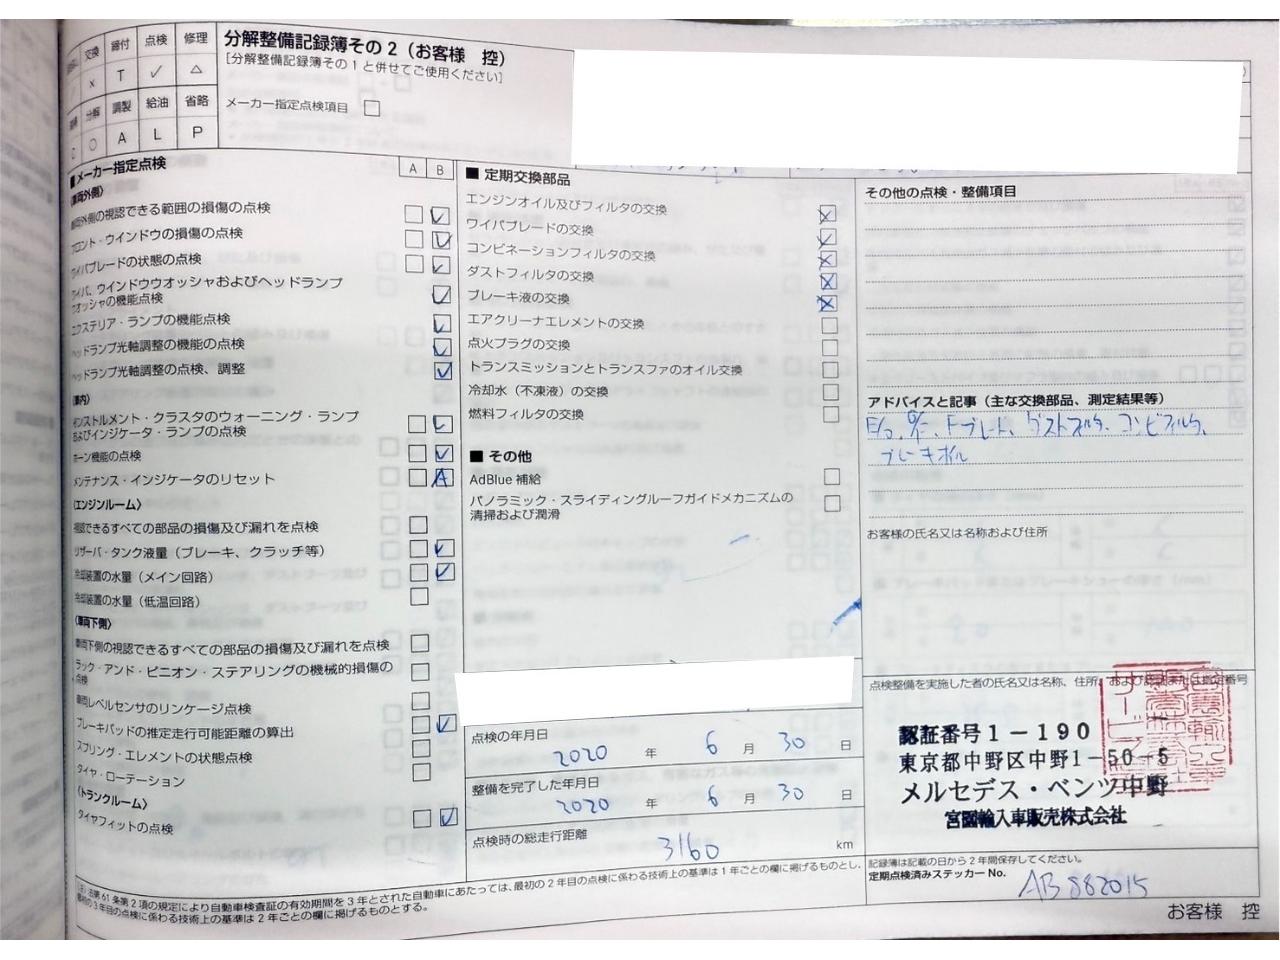 交換 締付 点検 修理
x T ✓ △
分解 調製 給油 省略
○ A L P
分解整備記録簿その2（お客様 控）
[分解整備記録簿その1と併せてご使用ください]
メーカー指定点検項目 □
■メーカー指定点検
A B
車両外側の視認できる範囲の損傷の点検
フロント・ウインドウの損傷の点検
ワイパブレードの状態の点検
ワイパ、ウインドウウオッシャおよびヘッドランプ
ウオッシャの機能点検
エクステリア・ランプの機能点検
ヘッドランプ光軸調整の機能の点検
ヘッドランプ光軸調整の点検、調整
〈車内〉
インストルメント・クラスタのウォーニング・ランプ
およびインジケータ・ランプの点検
ホーン機能の点検
メンテナンス・インジケータのリセット A
〈エンジンルーム〉
視認できるすべての部品の損傷及び漏れを点検
リザーバ・タンク液量（ブレーキ、クラッチ等）
冷却装置の水量（メイン回路）
冷却装置の水量（低温回路）
〈車両下側〉
車両下側の視認できるすべての部品の損傷及び漏れを点検
ラック・アンド・ピニオン・ステアリングの機械的損傷の
点検
車両レベルセンサのリンケージ点検
ブレーキパッドの推定走行可能距離の算出
スプリング・エレメントの状態点検
タイヤ・ローテーション
〈トランクルーム〉
タイヤフィットの点検
■ 定期交換部品
エンジンオイル及びフィルタの交換
ワイパブレードの交換
コンビネーションフィルタの交換
ダストフィルタの交換
ブレーキ液の交換
エアクリーナエレメントの交換
点火プラグの交換
トランスミッションとトランスファのオイル交換
冷却水（不凍液）の交換
燃料フィルタの交換
■ その他
AdBlue 補給
パノラミック・スライディングルーフガイドメカニズムの
清掃および潤滑
点検の年月日
2020 年 6 月 30 日
整備を完了した年月日
2020 年 6 月 30 日
点検時の総走行距離
3160 km
その他の点検・整備項目
アドバイスと記事（主な交換部品、測定結果等）
E/O、O/F、Fブレード、ダストフィルタ、コンビフィルタ、
ブレーキオイル
お客様の氏名又は名称および住所
点検整備を実施した者の氏名又は名称、住所、および認証又は指定番号
認証番号1-190
東京都中野区中野1-50-5
メルセデス・ベンツ中野
宮園輸入車販売株式会社
記録簿は記載の日から2年間保存してください。
定期点検済みステッカー No.
AB 882015
(注) 法第61条第2項の規定により自動車検査証の有効期間を3年とされた自動車にあたっては、最初の2年目の点検に係わる技術上の基準は1年ごとの欄に掲げるものとし、
最初の3年目の点検に係わる技術上の基準は2年ごとの欄に掲げるものとする。
お客様 控